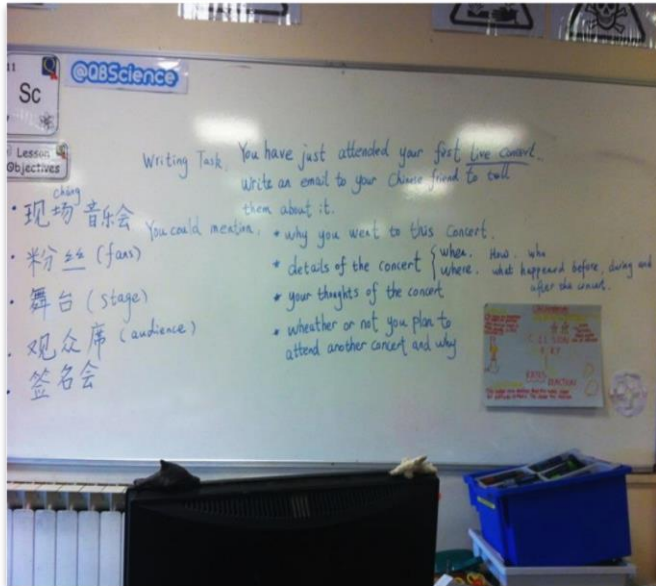 11
Sc
@QBScience
Lesson
Objectives
Writing Task. You have just attended your first live concert.
Write an email to your Chinese friend to tell
them about it.
cháng
• 现场音乐会
• 粉丝 (fans)
• 舞台 (stage)
• 观众席 (audience)
• 签名会
You could mention: * why you went to this concert.
* details of the concert { when. How. who
where. what happened before, during and
after the concert.
* your thoughts of the concert
* wheather or not you plan to
attend another concert and why